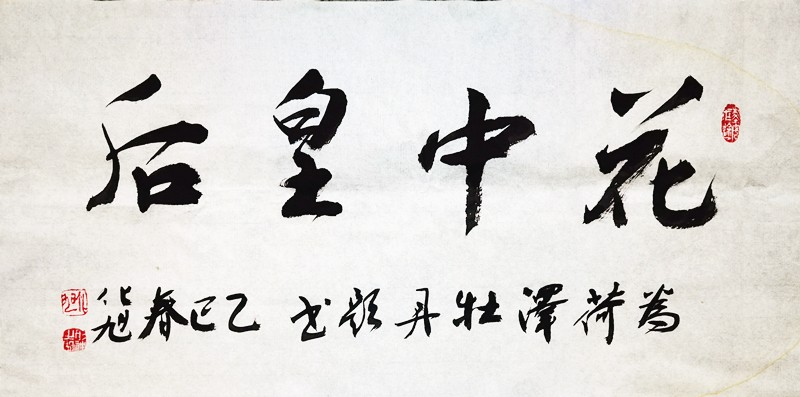 花中皇后
為荷澤牡丹題書 乙巳春